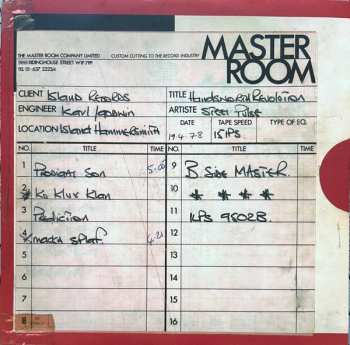 THE MASTER ROOM COMPANY LIMITED
CUSTOM CUTTING TO THE RECORD INDUSTRY
59/61 RIDINGHOUSE STREET W1P 7PP
TEL 01-637 2223/4
MASTER ROOM
CLIENT Island Records
TITLE Handsworth Revolution
ENGINEER Karl
ARTISTE Steel Pulse
LOCATION Island Hammersmith
DATE 19 4 78
TAPE SPEED 15 IPS.
TYPE OF EQ.
NO. TITLE TIME NO. TITLE TIME
1 Prodigal Son 5.00
9 B Side MASTER.
2 Ku Klux Klan
10 * * * *
3 Prediction
11 ILPS 9502B.
4 macka splaf. 4.21
12
5
13
6
14
7
15
8
16